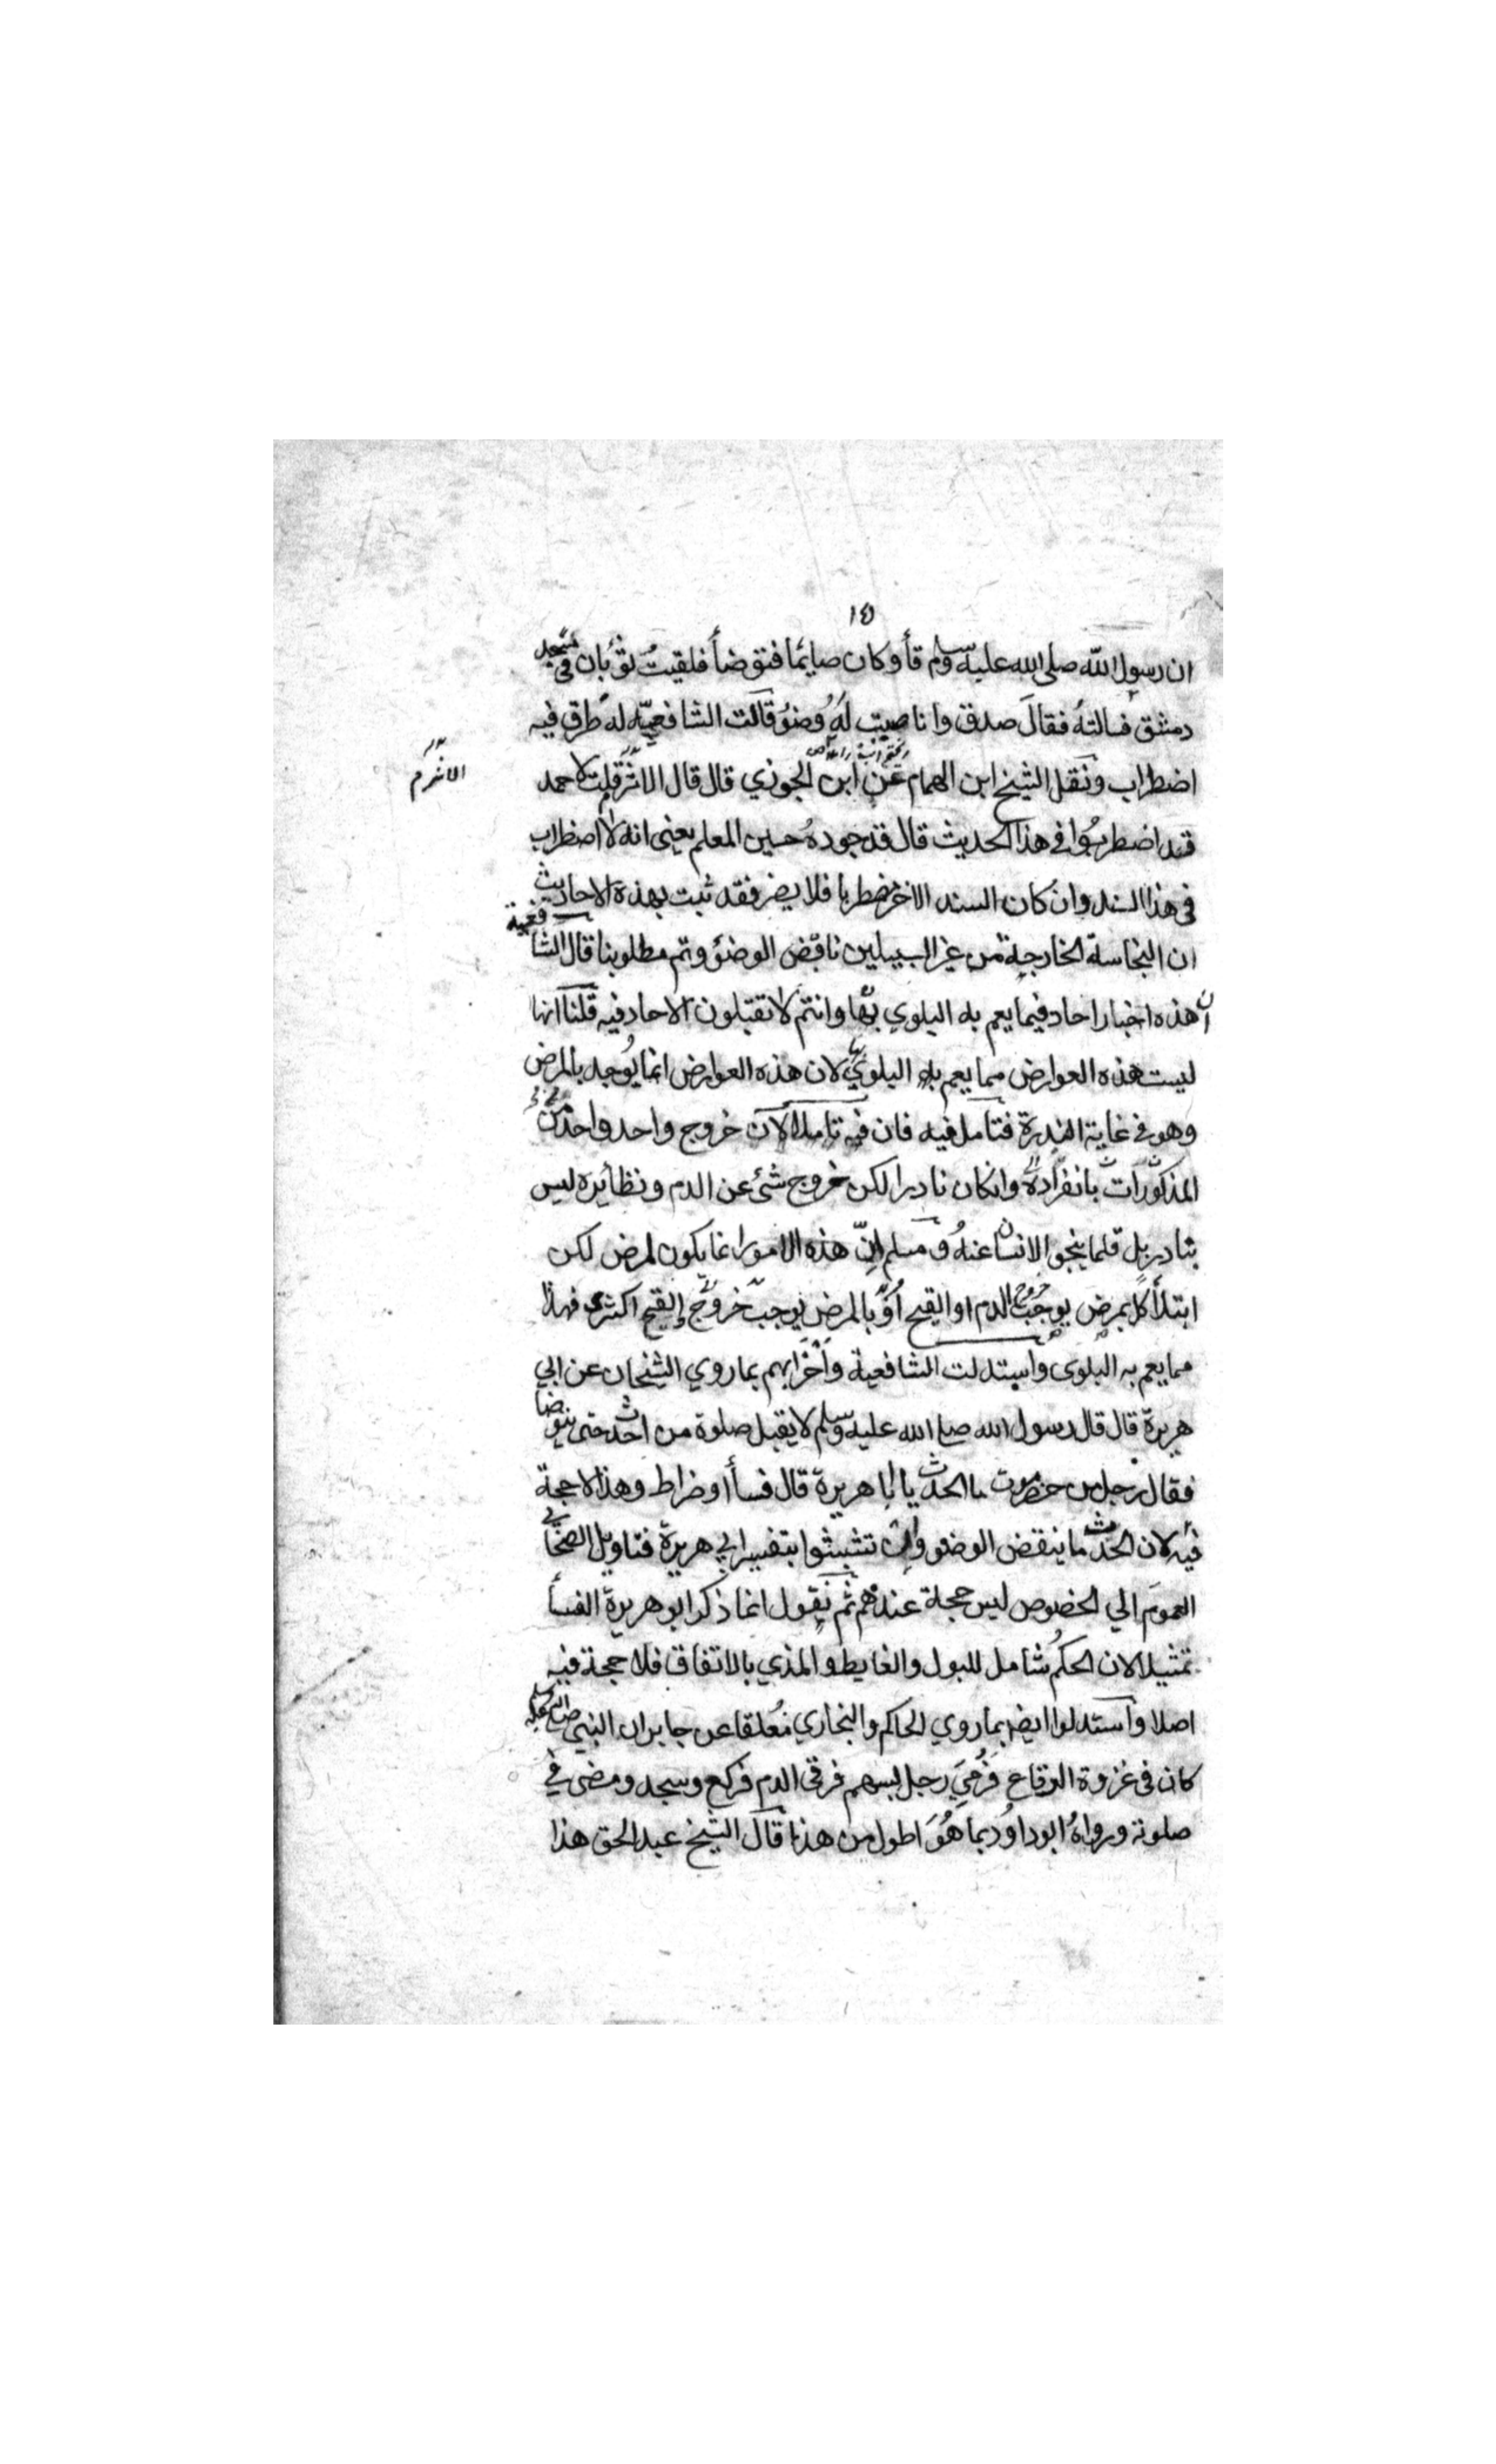 ١٥
ان رسول الله صلى الله عليه وسلم قأ وكان صايمًا فتوضأ فلقيتُ ثوبان في مسجد
دمشق فسالته فقال صدق وانا صببت له وُضوُ قالت الشافعيّة له طرق فيه
اضطراب ونقل الشيخ ابن الهمام عن ابن الجوزي قال قال الاثر قلت لاحمد
الاثرم
قد اضطربوُا في هذا الحديث قال قد جوده حسين المعلم يعني انه لا اضطراب
في هذا السند وان كان السند الاخر مضطربا فلا يضر فقد ثبت بهذة الاحاديث
ان النجاسة الخارجة من غير السبيلين ناقض الوضوُ وتم مطلوبنا قال الشافعية
ان هذه اخبار احاد فيما يعم به البلوي بها وانتم لا تقبلون الاحاد فيه قلنا انها
ليست هذه العوارض مما يعم به البلوي لان هذه العوارض انما يُوجد بالمرض
وهو في غاية الندرة فتامل فيه فان فيه تاملا لان خروج واحد واحد من
المذكورات بانفراده وانكان نادرا لكن خروج شئ عن الدم ونظايره ليس
بنادر بل قلما ينجو الانسان عنهُ ومسلم انّ هذه الامور انما يكون لمرض لكن
ابتلأ كل بمرض يوجب خروج الدم او القيح اوّ بالمرض يوجب خروج القيح اكثرى فهذا
مما يعم به البلوى واستدلت الشافعية واحزابهم بما روي الشيخان عن ابي
هريرة قال قال رسول الله صلى الله عليه وسلم لا يقبل صلوة من احدث حتى يتوضا
فقال رجل من حضرموت ما الحدث يا ابا هريرة قال فسأ او ضراط وهذا لا حجة
فيه لان الحدث ما ينقض الوضو وان تشبثوا بتفسير ابي هريرة فتاويل الصحابي
العموم الي الخصوص ليس حجة عندهم ثم نقول انما ذكر ابو هريرة الفسأ
تمثيلا لان الحكم شامل للبول والغايط والمذي بالاتفاق فلا حجة فيه
اصلا واستدلوا ايضا بما روي الحاكم والبخاري مُعلقا عن جابر ان النبي صلى الله عليه
كان في غزوة الرقاع فرُمِيَ رجل بسهم فرقى الدم فركع وسجد ومضى في
صلوته ورواهُ ابو داوُد بما هُوَ اطول من هذا قال الشيخ عبد الحق هذا